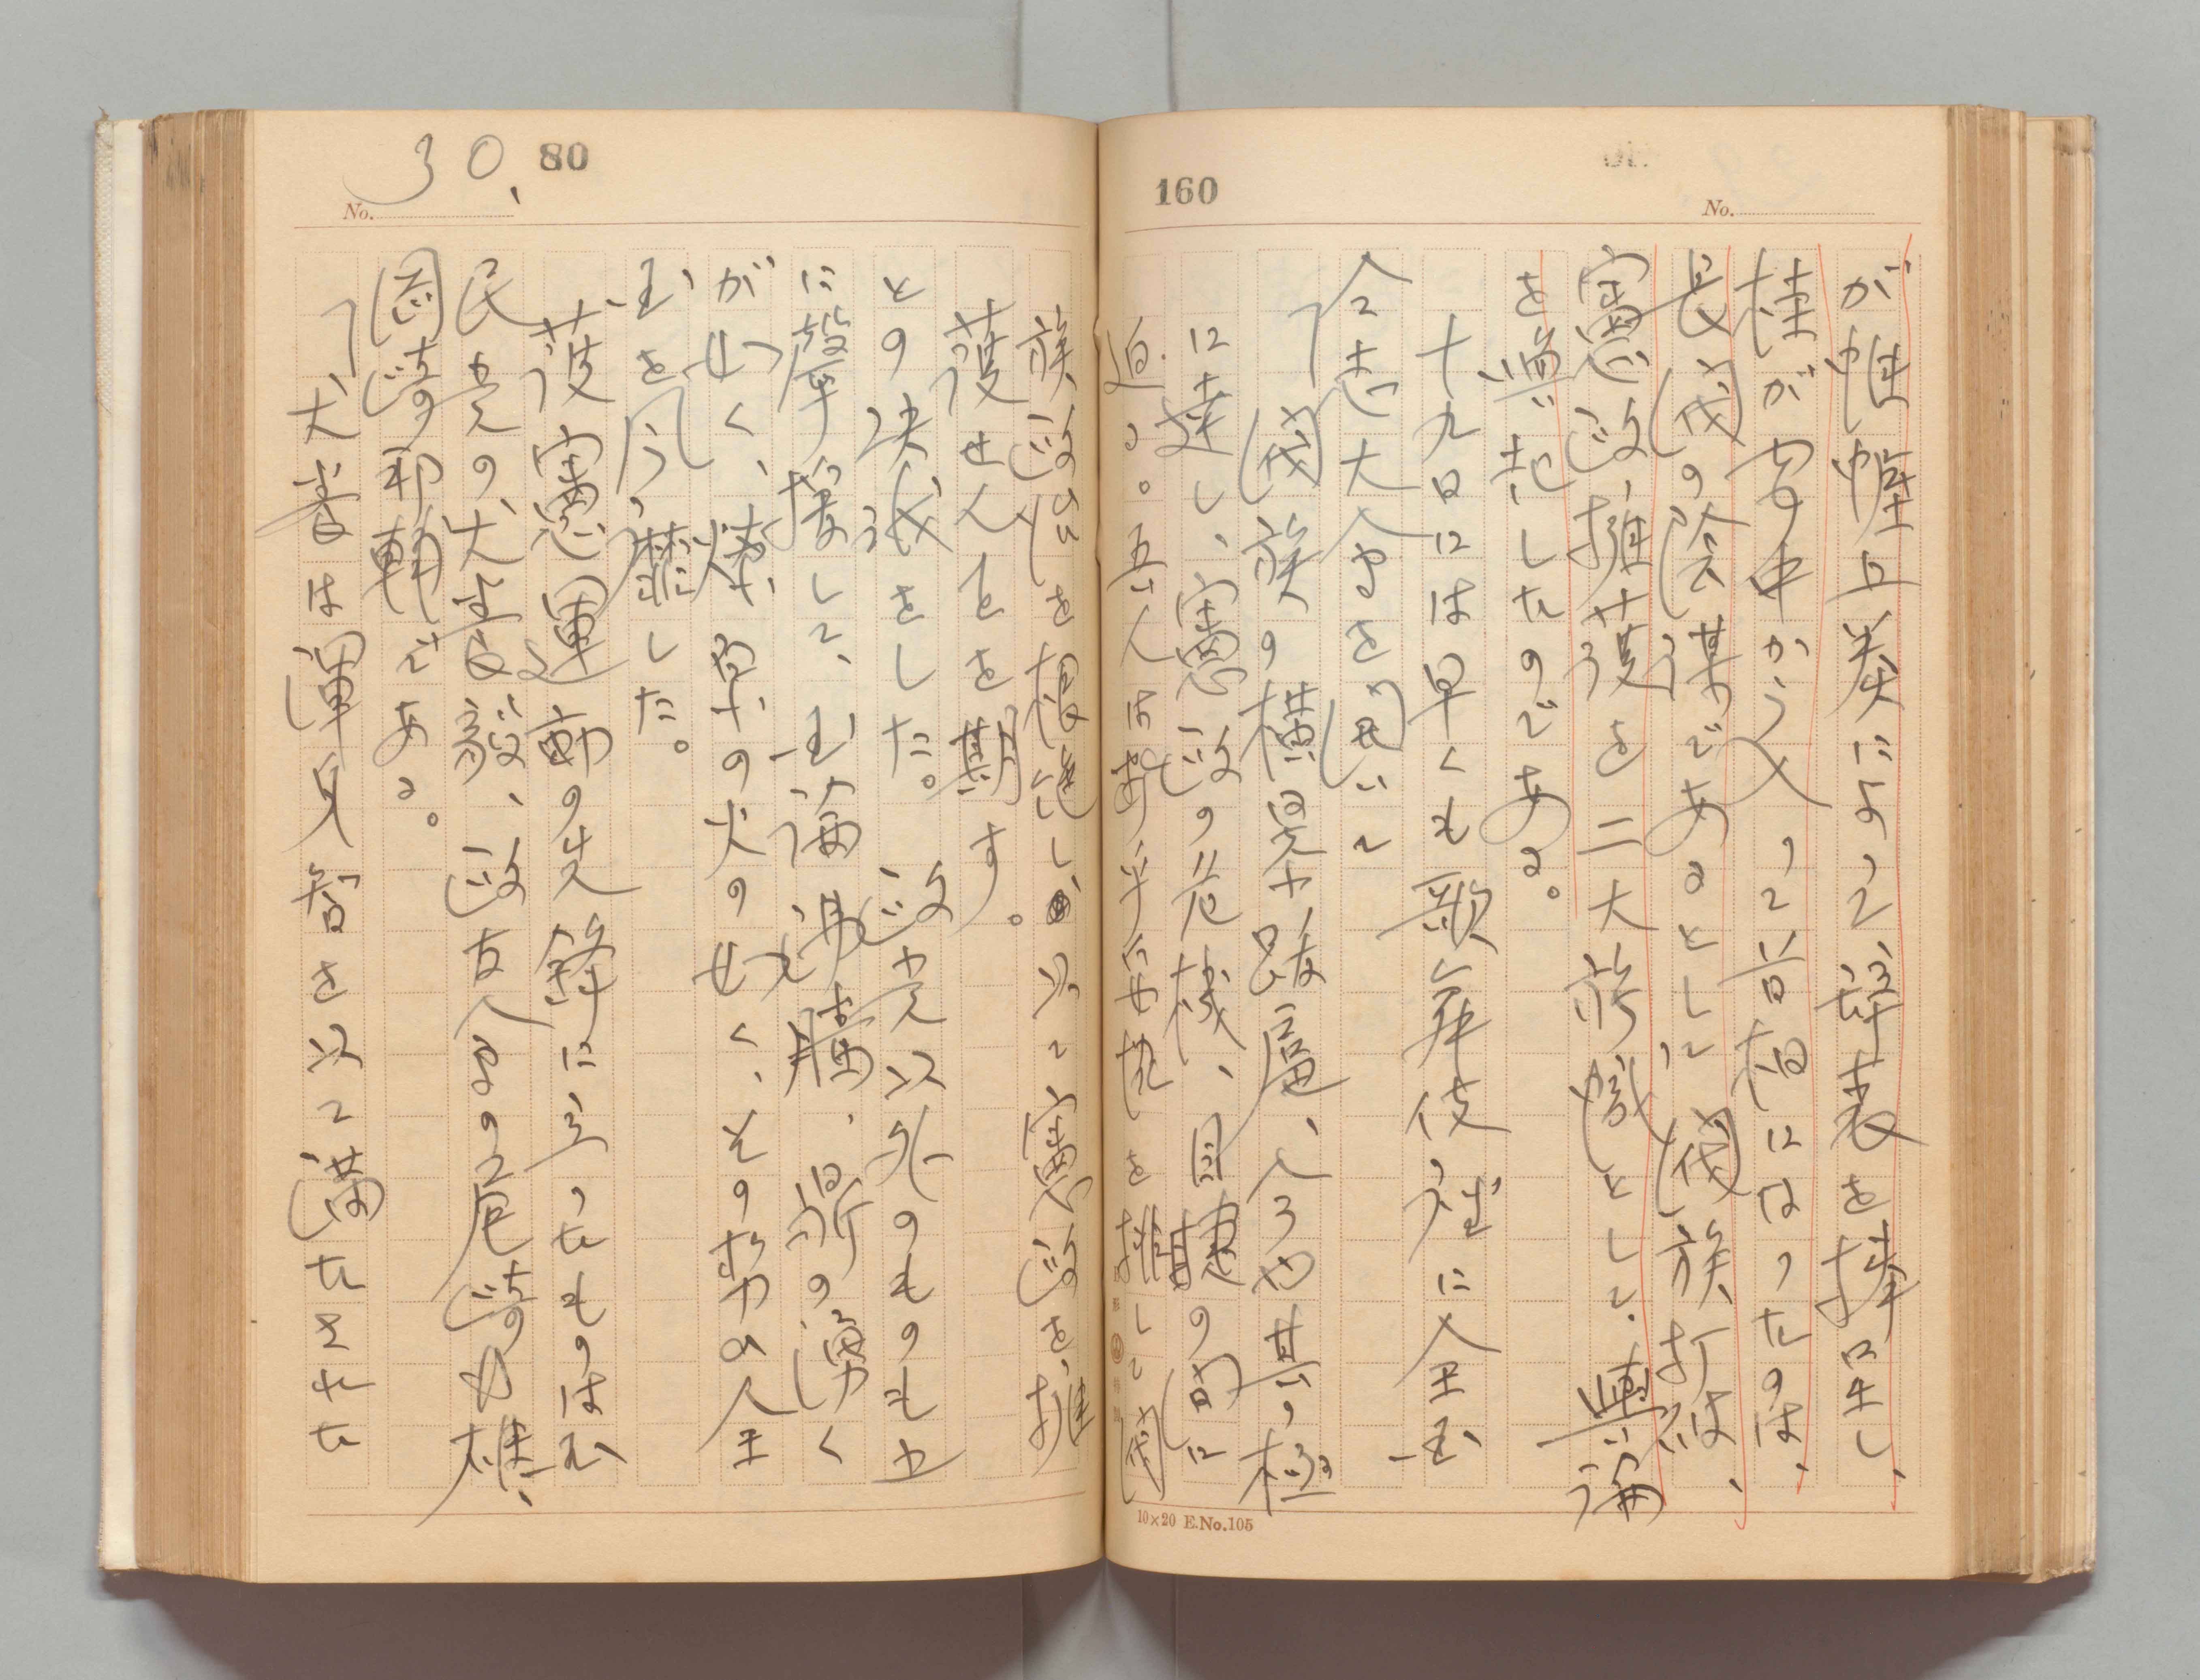 160
No.
が惟幄上奏によつて、辞表を捧呈し、
桂が宮中から入つて首相になつたのは、
長閥の陰謀であるとして閥族打破、
憲政擁護を二大旂幟として、輿論
を興起したのである。
十九日には早くも歌舞伎座に全国
令志大会を開いて
「閥族の横暴跋扈、今や其の極
に達し、憲政の危機、目睫の間に
迫る。吾人は断乎妥協を排して閥
10×20 E.No.105
80
No. 30.
族政治を根絶し、以て憲政を擁
護せんことを期す。
との決議をした。政党以外のものも立
に声援して、国論沸騰、鼎の湧く
が如く、燎原の火の如く、その勢の全
国を風靡した。
護憲運動の先鋒に立つたものは国
民党の犬養毅、政友会の尾崎行雄、
岡崎邦輔である。
「犬養は渾身智を以て満たされた